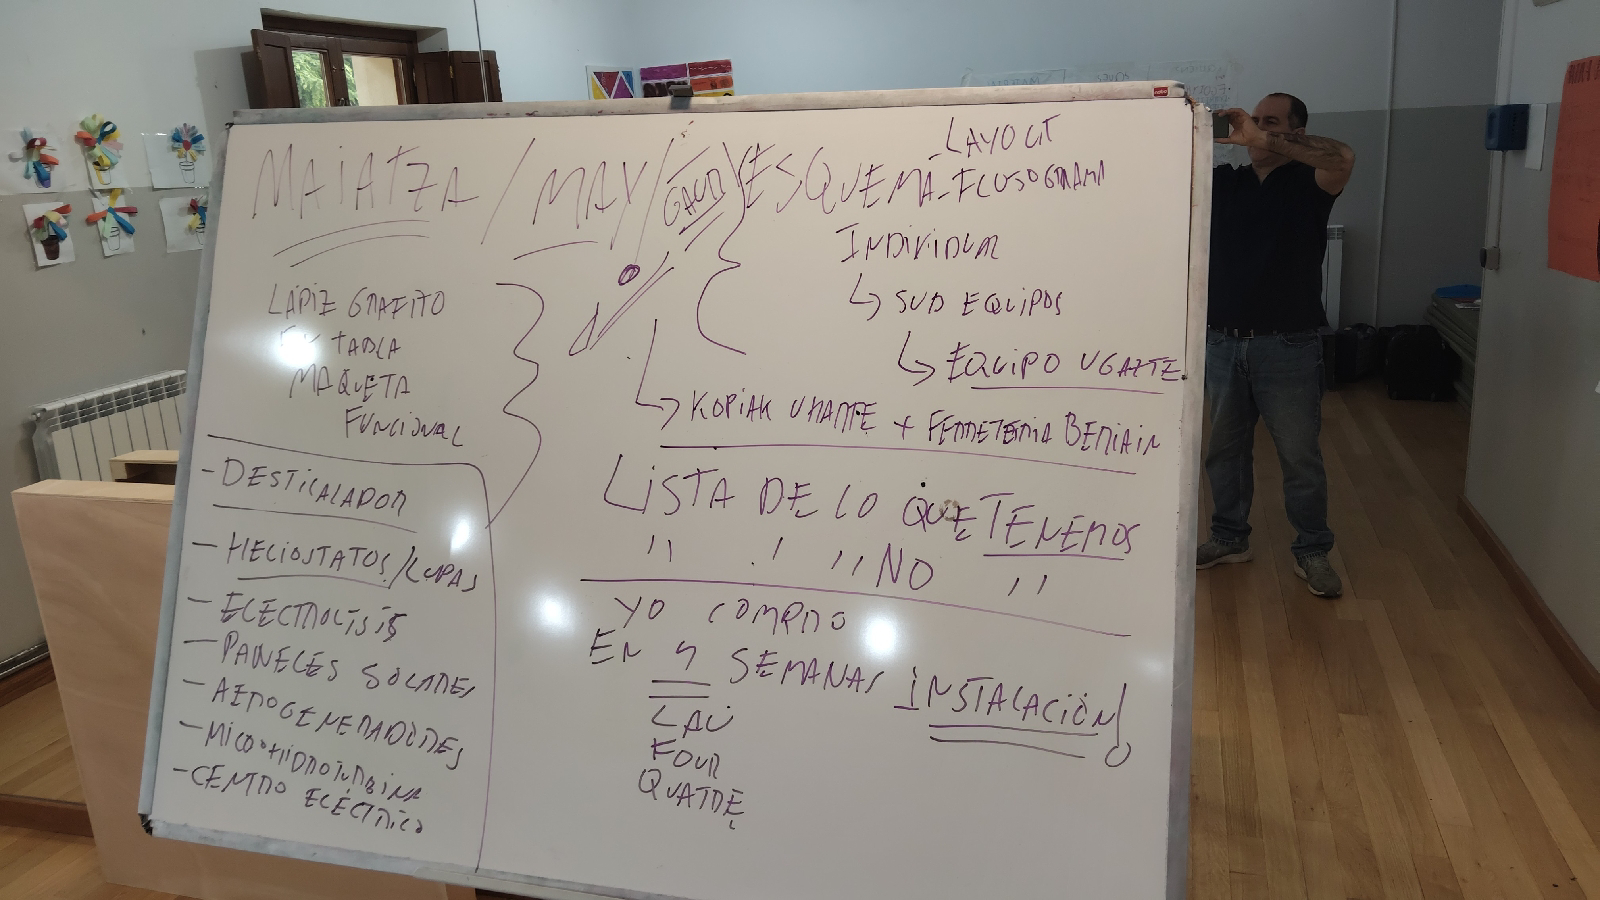 MAIATZA / MAY /
ESQUEMA-FLUSOGRAMA
LAYOUT
INDIVIDUAL
↳ SUB EQUIPOS
↳ EQUIPO UGARTE
LÁPIZ GRAFITO
TABLA
MAQUETA
FUNCIONAL
→ KOPIAK UHARTE + FERRETERIA BERIAIN
- DESTILALADOR
- HELIOSTATOS/LUPAS
- ELECTROLISIS
- PANELES SOLARES
- AEROGENERADORES
- MICOHIDROTURBINA
- CENTRO ELÉCTRICO
LISTA DE LO QUE TENEMOS
" " " NO "
YO COMPRO
EN 4 SEMANAS INSTALACIÓN!
LAU
FOUR
QUATRE